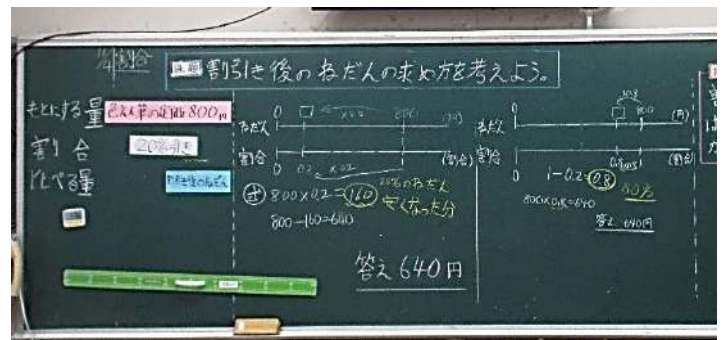 課題 割引き後のねだんの求め方を考えよう。
もとにする量 色えん筆の定価 800円
割合 20%引き
くらべる量 割引き後のねだん
0 □ ×0.2 800 (円)
ねだん
割合
0 0.2 ×0.2 (割合)
式 800×0.2=160 20%のねだん
安くなった分
800-160=640
答え 640円
0 □ 800 (円)
ねだん
割合
0 0.8 (割合)
1-0.2=0.8
80%
800×0.8=640
答え 640円